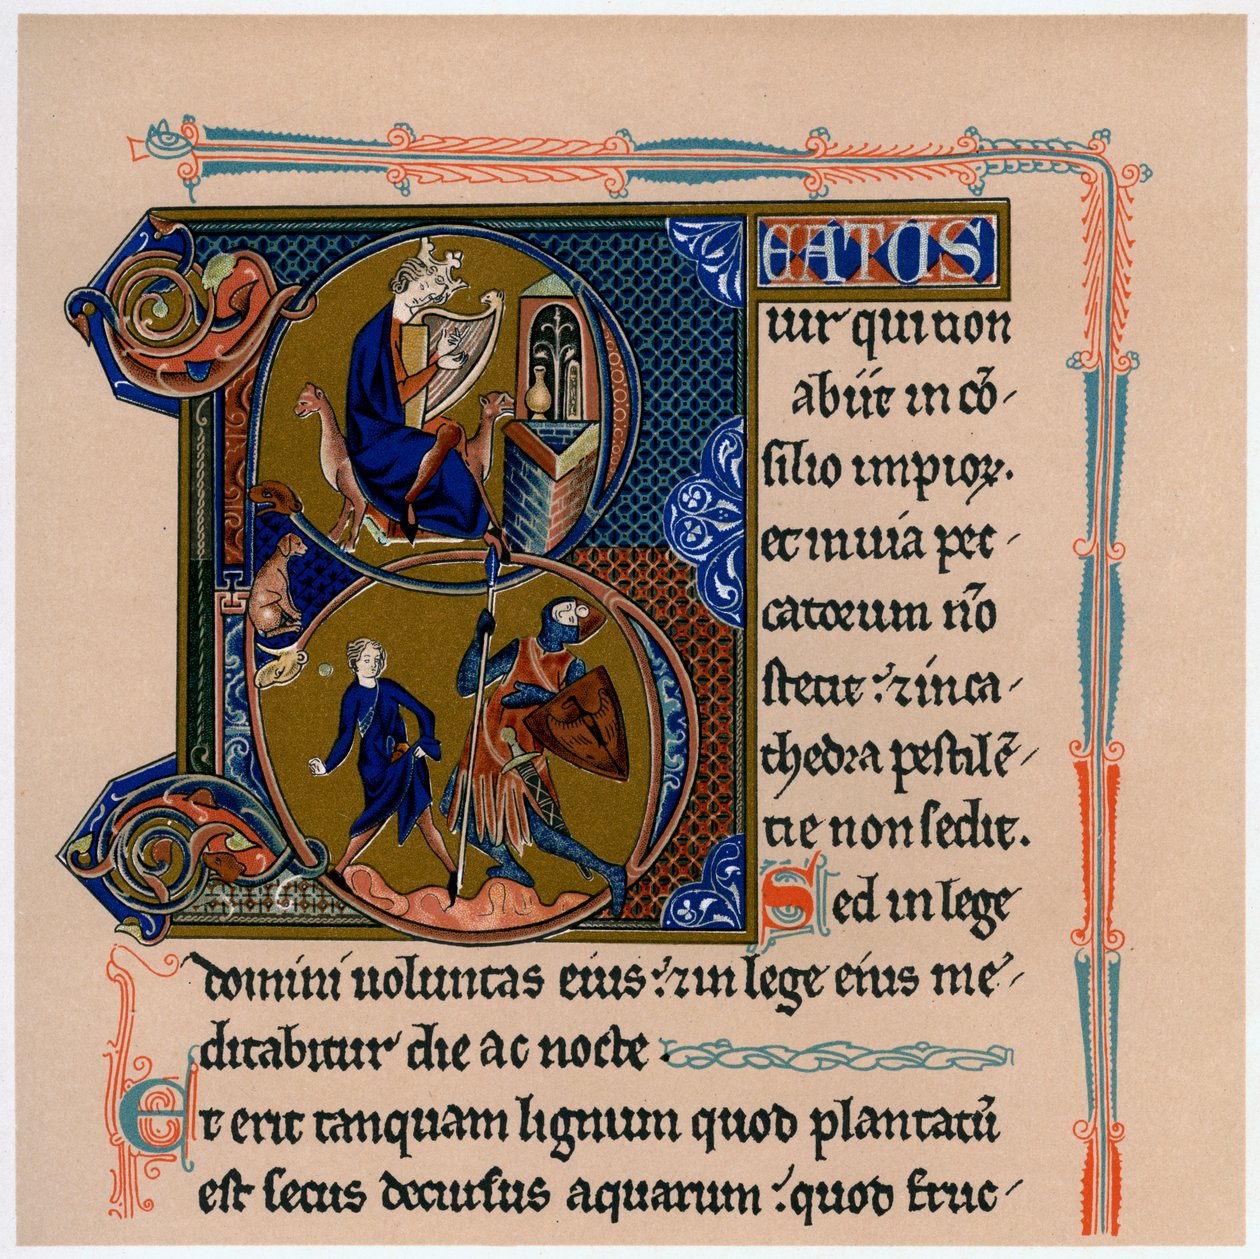 BEATUS
uir qui non
abiit in cō-
silio impioꝝ.
et in uia pec-
catorum nō
stetit: ⁊ in ca-
thedra pestilē-
tie non sedit.
Sed in lege
domini uoluntas eius: ⁊ in lege eius me-
ditabitur die ac nocte.
Et erit tanquam lignum quod plantatū
est secus decursus aquarum: quod fruc-